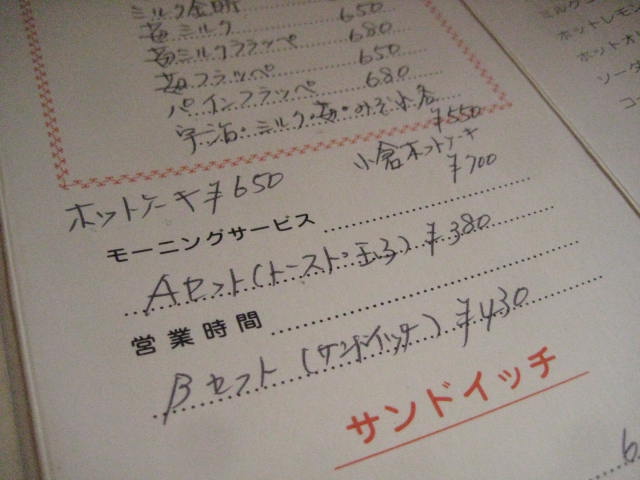 ミルク金時
苺ミルク 650
苺ミルクフラッペ 680
苺フラッペ 650
パインフラッペ 680
宇治・ミルク・苺・みぞれ
¥550
小倉ホットケーキ
¥700
ホットケーキ ¥650
モーニングサービス
Aセット(トースト・玉子) ¥380
営業時間
Bセット (サンドイッチ) ¥430
サンドイッチ
ミルク
ホットレモ
ホットオレ
ソーダ
コー
6